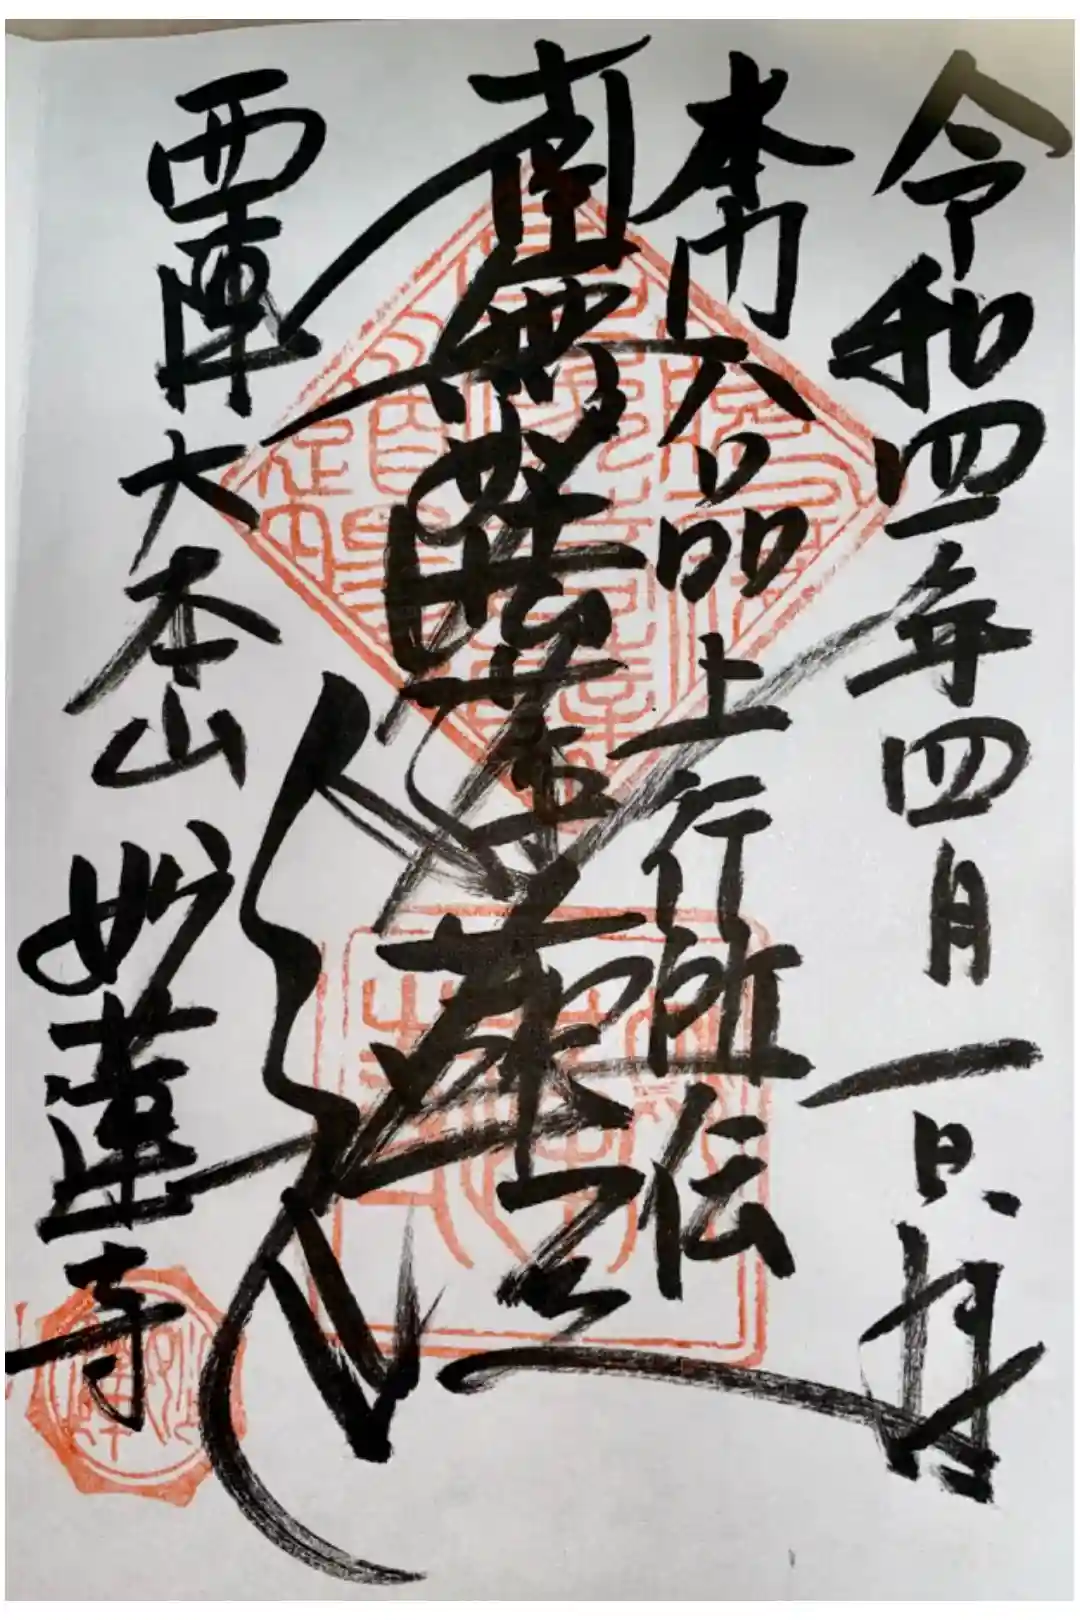 令和四年四月一日拜
本門八品上行所伝
南無妙法蓮華経
西陣大本山妙蓮寺